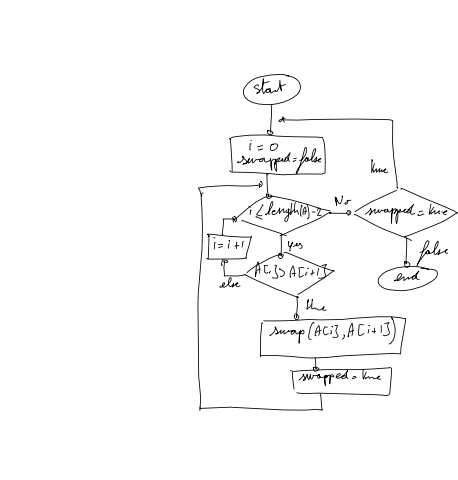 Start
i = 0
swapped = false
i ≤ length(A)-2
No
swapped = true
true
false
end
i = i+1
yes
A[i] > A[i+1]
else
true
swap (A[i], A[i+1])
swapped = true